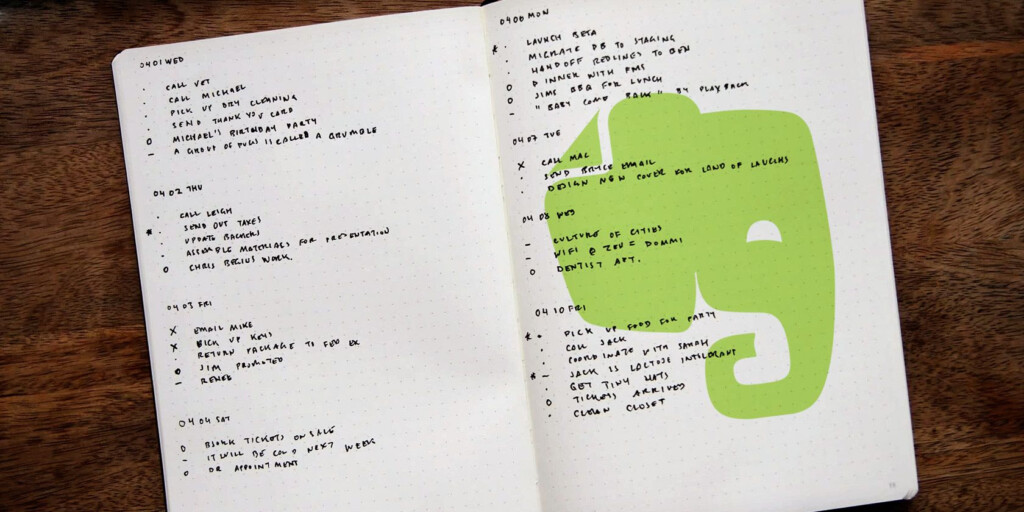 04 01 WED
. CALL VET
. CALL MICHAEL
. PICK UP DRY CLEANING
. SEND THANK YOU CARD
O MICHAEL'S BIRTHDAY PARTY
– A GROUP OF PUGS IS CALLED A GRUMBLE
04 02 THU
. CALL LEIGH
* . SEND OUT TAXES
. UPDATE BACKERS
. ASSEMBLE MATERIALS FOR PRESENTATION
O CHRIS BEGINS WORK.
04 03 FRI
X EMAIL MIKE
X PICK UP KEYS
. RETURN PACKAGE TO FED EX
O JIM PROMOTED
– RENEE
04 04 SAT
O BJORK TICKETS ON SALE
– IT WILL BE COLD NEXT WEEK
O DR APPOINTMENT
04 06 MON
* . LAUNCH BETA
. MIGRATE DB TO STAGING
. HANDOFF REDLINES TO BEN
O DINNER WITH
O JIMS BBQ FOR LUNCH
– "BABY COME BACK" BY PLAYBACK
04 07 TUE
X CALL MAC
. SEND BRYCE EMAIL
. DESIGN NEW COVER FOR LAND OF LAUGHS
04 08 WED
– CULTURE OF CITIES
– WIFI @
O DENTIST APT.
04 10 FRI
* . PICK UP FOOD FOR PARTY
. CALL JACK
. COORDINATE WITH SARAH
* – JACK IS LACTOSE INTOLERANT
. GET TINY HATS
O TICKETS ARRIVED
. CLEAN CLOSET